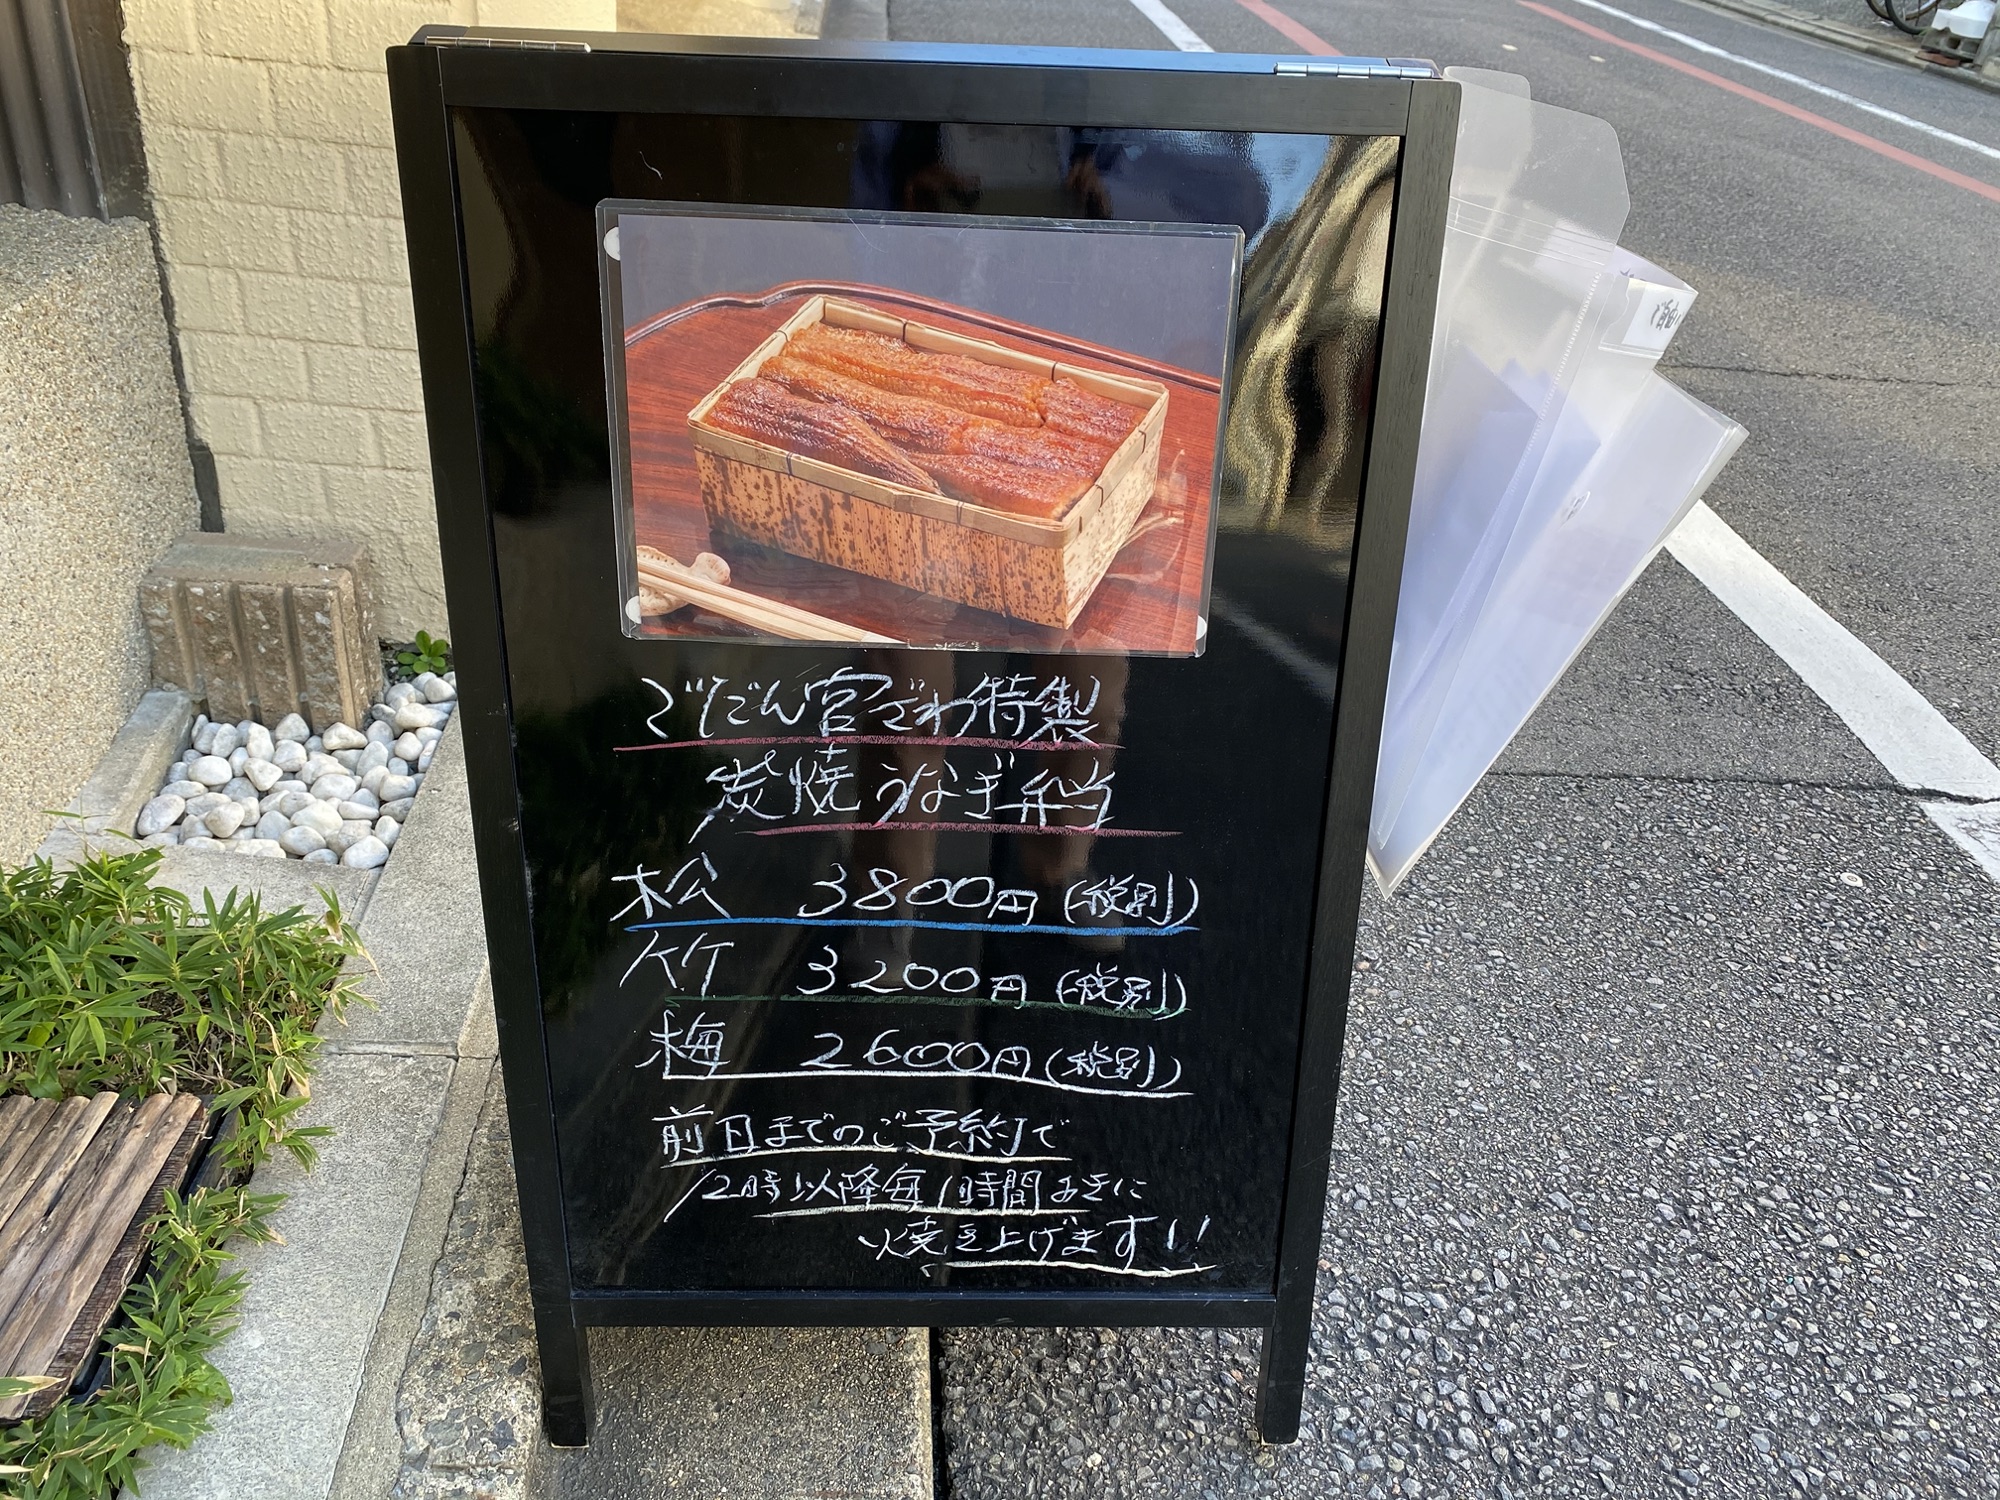 ごだん宮ざわ特製
炭焼うなぎ弁当
松 3800円(税別)
竹 3200円(税別)
梅 2600円(税別)
前日までのご予約で
12時以降毎1時間おきに
焼き上げます!!
ご自由